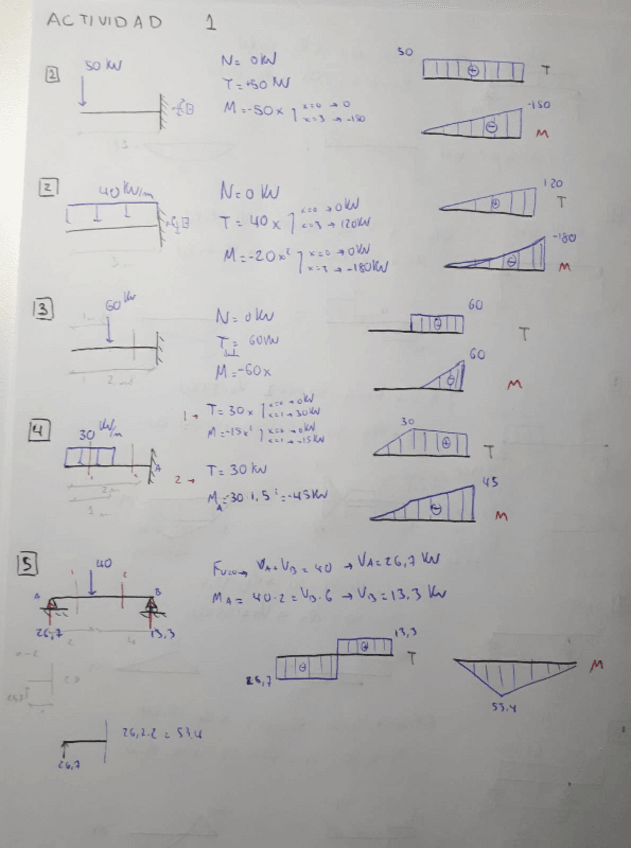 ACTIVIDAD 1
1
50 kN
N = 0 kN
T = +50 kN
M = -50x } x=0 → 0
x=3 → -150
50
T
-150
M
2
40 kN/m
N = 0 kN
T = 40x } x=0 → 0 kN
x=3 → 120 kN
M = -20x² } x=0 → 0 kN
x=3 → -180 kN
120
T
-180
M
3
60 kN
N = 0 kN
T = 60 kN
M = -60x
60
T
60
M
4
30 kN/m
A
1 → T = 30x } x=0 → 0 kN
x=1 → 30 kN
M = -15x² } x=0 → 0 kN
x=1 → -15 kN
2 → T = 30 kN
M_A = 30·1,5 = -45 kN
30
T
45
M
5
40
A
B
26,7
13,3
V_A + V_B = 40 → V_A = 26,7 kN
M_A = 40·2 = V_B·6 → V_B = 13,3 kN
13,3
T
26,7
M
53,4
26,7
26,7·2 = 53,4